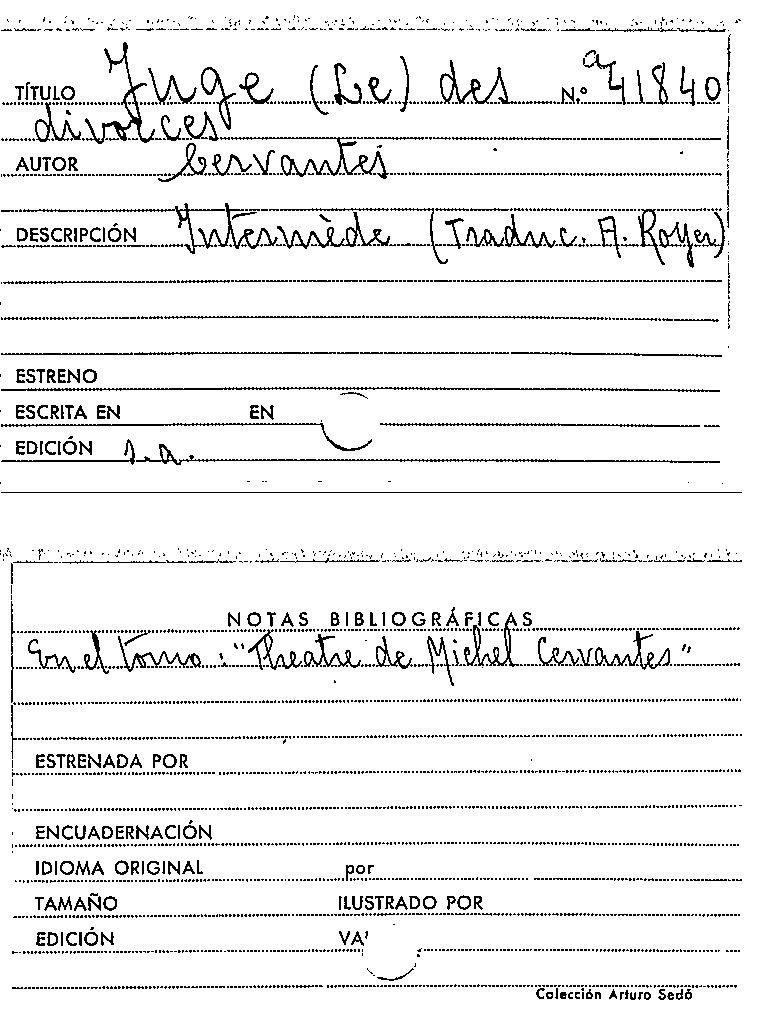 TÍTULO Juge (Le) des N.º a41840
divorces
AUTOR Cervantes
DESCRIPCIÓN Intermède (Traduc. A. Royer)
ESTRENO
ESCRITA EN EN
EDICIÓN s.a.
NOTAS BIBLIOGRÁFICAS
En el tomo: "Theatre de Michel Cervantes"
ESTRENADA POR
ENCUADERNACIÓN
IDIOMA ORIGINAL por
TAMAÑO ILUSTRADO POR
EDICIÓN VA
Colección Arturo Sedó